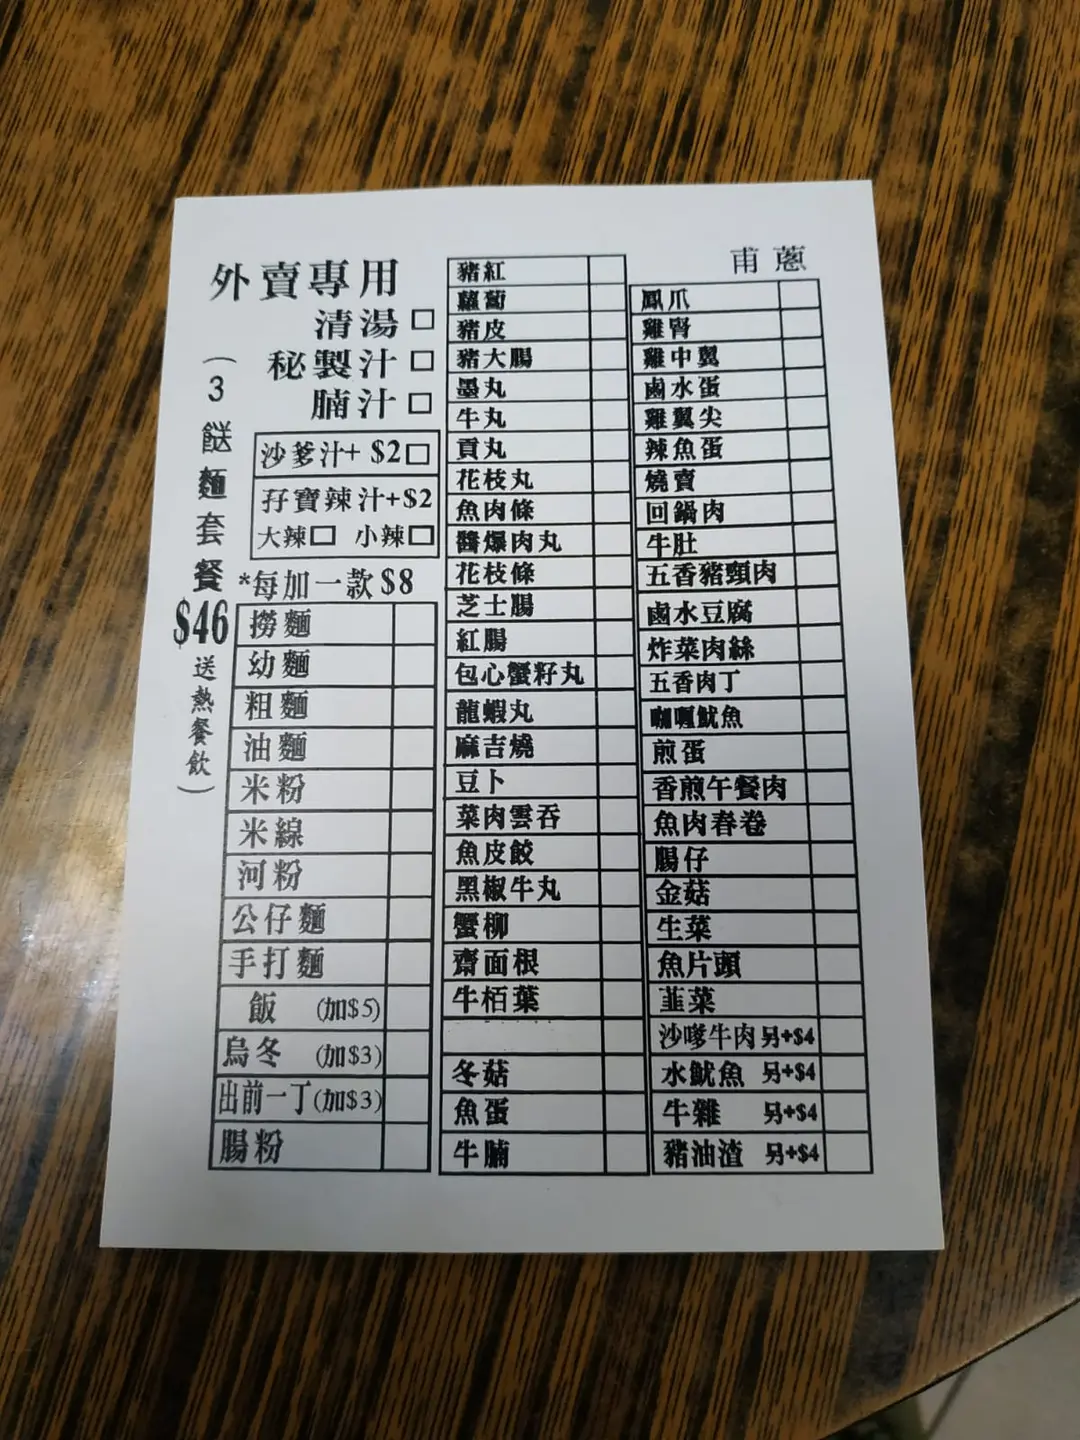 外賣專用
清湯
秘製汁
腩汁
沙爹汁+ $2
孖寶辣汁+$2
大辣 小辣
*每加一款 $8
（3餸麵套餐
$46
送熱餐飲）
撈麵
幼麵
粗麵
油麵
米粉
米線
河粉
公仔麵
手打麵
飯 (加$5)
烏冬 (加$3)
出前一丁(加$3)
腸粉
豬紅
蘿蔔
豬皮
豬大腸
墨丸
牛丸
貢丸
花枝丸
魚肉條
醬爆肉丸
花枝條
芝士腸
紅腸
包心蟹籽丸
龍蝦丸
麻吉燒
豆卜
菜肉雲吞
魚皮餃
黑椒牛丸
蟹柳
齋面根
牛栢葉
冬菇
魚蛋
牛腩
甫 蔥
鳳爪
雞腎
雞中翼
鹵水蛋
雞翼尖
辣魚蛋
燒賣
回鍋肉
牛肚
五香豬頸肉
鹵水豆腐
炸菜肉絲
五香肉丁
咖喱魷魚
煎蛋
香煎午餐肉
魚肉春卷
腸仔
金菇
生菜
魚片頭
韮菜
沙嗲牛肉 另+$4
水魷魚 另+$4
牛雜 另+$4
豬油渣 另+$4